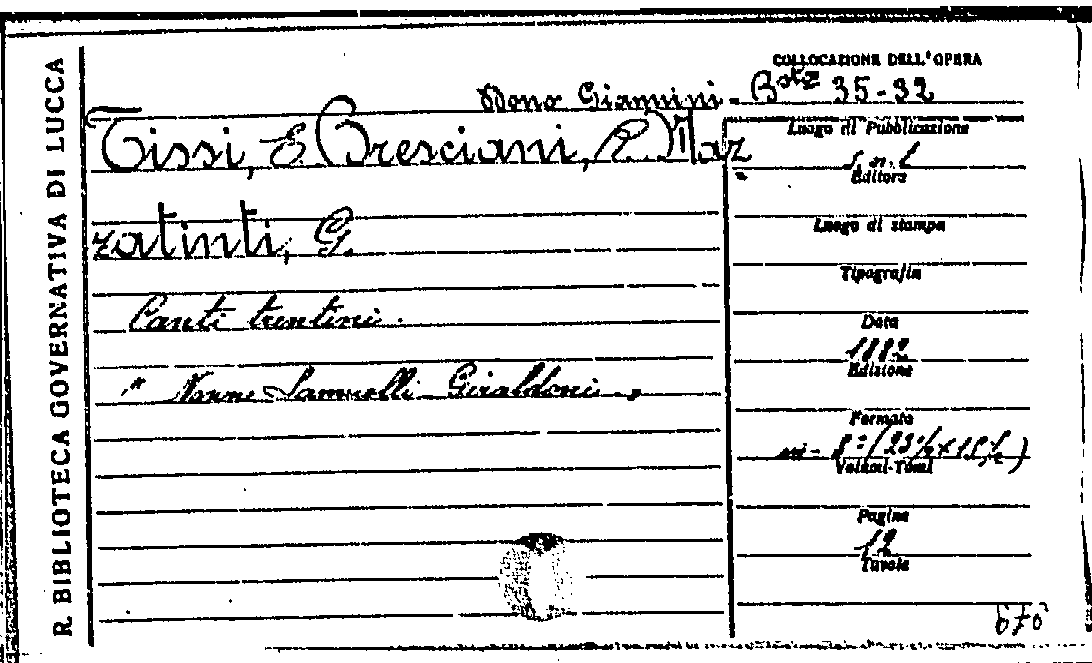 R. BIBLIOTECA GOVERNATIVA DI LUCCA
COLLOCAZIONE DELL'OPERA
Dono Giannini - Bta 35-32
Tissi, E. Bresciani, R. Maz
zatinti, G.
Canti trentini.
" Nozze Samuelli-Giraldoni "
Luogo di Pubblicazione
s. n. l
Editore
Luogo di stampa
Tipografia
Data
1882
Edizione
Formato
in-8° (23½ x 15½)
Volumi-Tomi
Pagine
12
Tavole
670